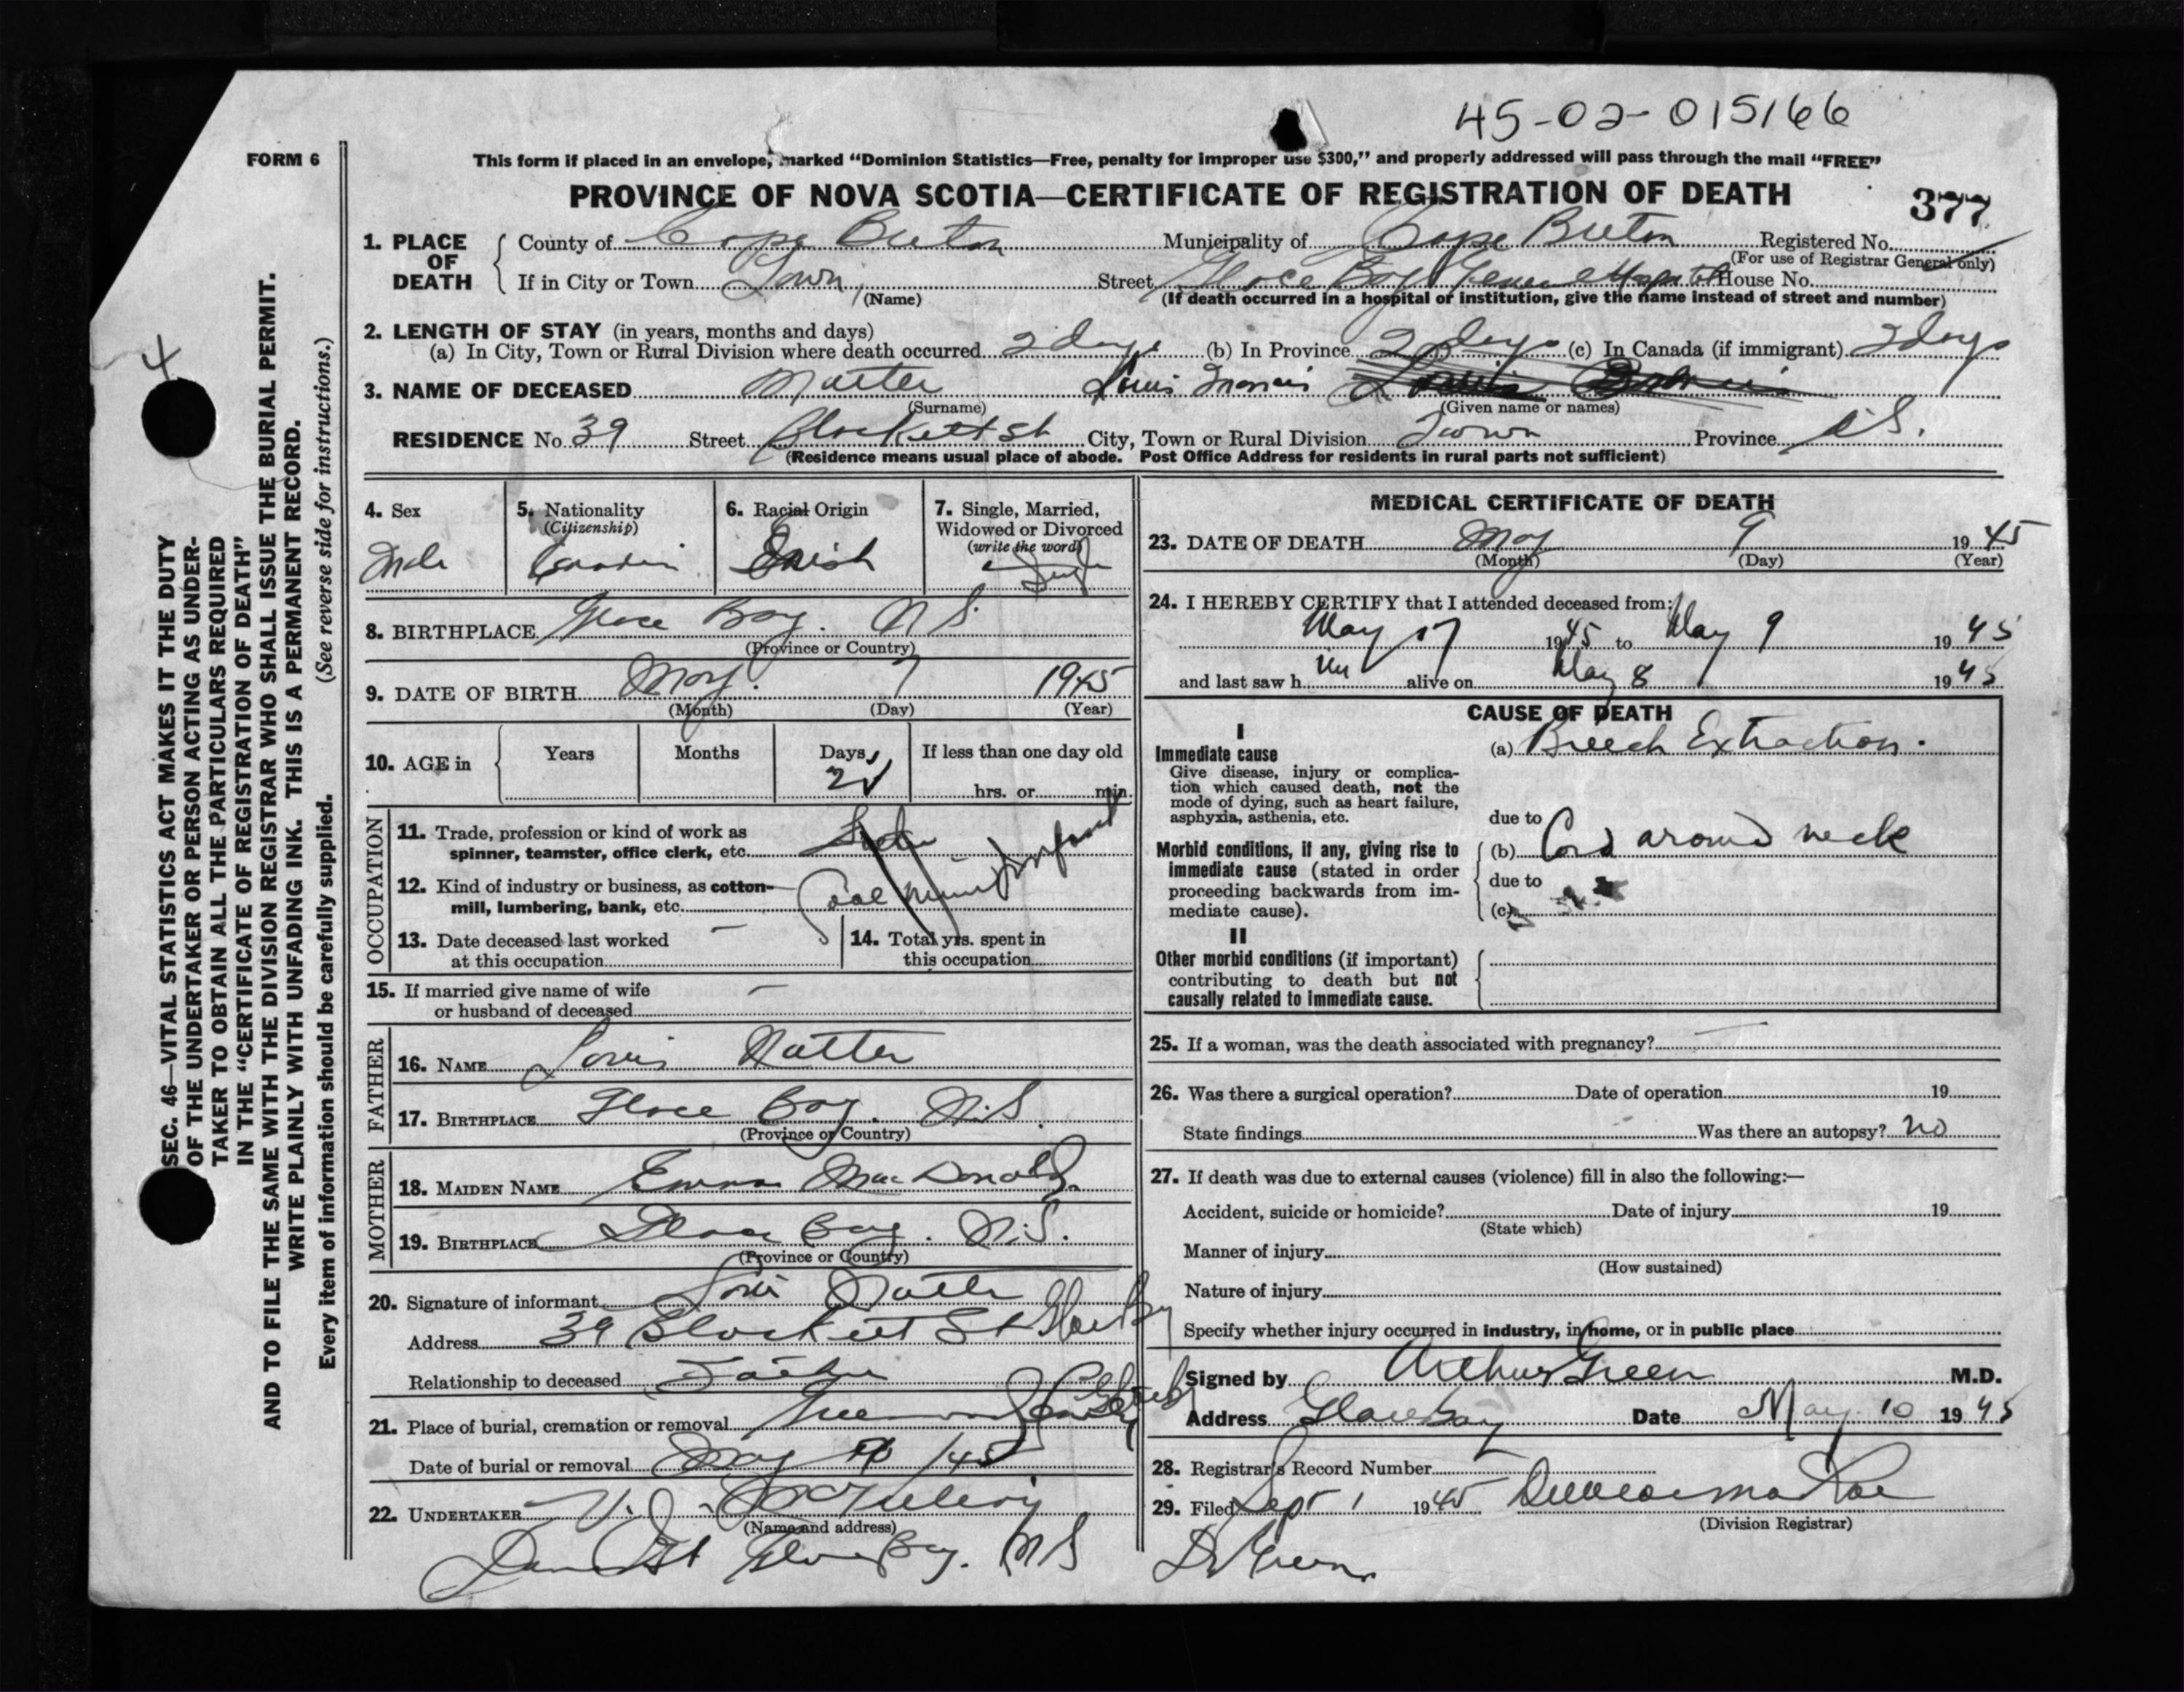 45-02-015166
FORM 6
This form if placed in an envelope, marked “Dominion Statistics—Free, penalty for improper use $300,” and properly addressed will pass through the mail “FREE”
PROVINCE OF NOVA SCOTIA—CERTIFICATE OF REGISTRATION OF DEATH
377
1. PLACE OF DEATH
County of Cape Breton Municipality of Cape Breton Registered No.
(For use of Registrar General only)
If in City or Town Town Street Glace Bay General Hospital House No.
(Name) (If death occurred in a hospital or institution, give the name instead of street and number)
2. LENGTH OF STAY (in years, months and days)
(a) In City, Town or Rural Division where death occurred 2 days (b) In Province 2 days (c) In Canada (if immigrant) 2 days
3. NAME OF DECEASED Natter Louis Francis
(Surname) (Given name or names)
RESIDENCE No. 39 Street Blackett St City, Town or Rural Division Town Province N.S.
(Residence means usual place of abode. Post Office Address for residents in rural parts not sufficient)
4. Sex
Male
5. Nationality
(Citizenship)
Canadian
6. Racial Origin
Irish
7. Single, Married,
Widowed or Divorced
(write the word)
Single
8. BIRTHPLACE Glace Bay. N S.
(Province or Country)
9. DATE OF BIRTH May. 7 1945
(Month) (Day) (Year)
10. AGE in
Years Months Days If less than one day old
2
hrs. or min.
OCCUPATION
11. Trade, profession or kind of work as
spinner, teamster, office clerk, etc.
12. Kind of industry or business, as cotton-
mill, lumbering, bank, etc. Coal Mining Infant
13. Date deceased last worked —
at this occupation
14. Total yrs. spent in
this occupation
15. If married give name of wife —
or husband of deceased
FATHER
16. NAME Louis Natter
17. BIRTHPLACE Glace Bay. N.S.
(Province or Country)
MOTHER
18. MAIDEN NAME Emma MacDonald.
19. BIRTHPLACE Glace Bay. N.S.
(Province or Country)
20. Signature of informant Louis Natter
Address 39 Blackett St Glace Bay
Relationship to deceased Father
21. Place of burial, cremation or removal Greenwood
Date of burial or removal May 10 /45
22. UNDERTAKER V. J. McGillivary
(Name and address)
Glace Bay. N S
MEDICAL CERTIFICATE OF DEATH
23. DATE OF DEATH May 9 1945
(Month) (Day) (Year)
24. I HEREBY CERTIFY that I attended deceased from:
May 7 1945 to May 9 1945
and last saw him alive on May 8 1945
CAUSE OF DEATH
I
Immediate cause
Give disease, injury or complica-
tion which caused death, not the
mode of dying, such as heart failure,
asphyxia, asthenia, etc.
(a) Breech Extraction.
due to
Morbid conditions, if any, giving rise to
immediate cause (stated in order
proceeding backwards from im-
mediate cause).
(b) Cord around neck
due to
(c)
II
Other morbid conditions (if important)
contributing to death but not
causally related to immediate cause.
25. If a woman, was the death associated with pregnancy? —
26. Was there a surgical operation? Date of operation 19
State findings Was there an autopsy? no
27. If death was due to external causes (violence) fill in also the following:—
Accident, suicide or homicide? Date of injury 19
(State which)
Manner of injury
(How sustained)
Nature of injury
Specify whether injury occurred in industry, in home, or in public place
Signed by Arthur Green M.D.
Address Glace Bay Date May 10 1945
28. Registrar's Record Number
29. Filed Sept 1 1945
(Division Registrar)
Dr Green
4
SEC. 46—VITAL STATISTICS ACT MAKES IT THE DUTY
OF THE UNDERTAKER OR PERSON ACTING AS UNDER-
TAKER TO OBTAIN ALL THE PARTICULARS REQUIRED
IN THE “CERTIFICATE OF REGISTRATION OF DEATH”
AND TO FILE THE SAME WITH THE DIVISION REGISTRAR WHO SHALL ISSUE THE BURIAL PERMIT.
WRITE PLAINLY WITH UNFADING INK. THIS IS A PERMANENT RECORD.
Every item of information should be carefully supplied. (See reverse side for instructions.)